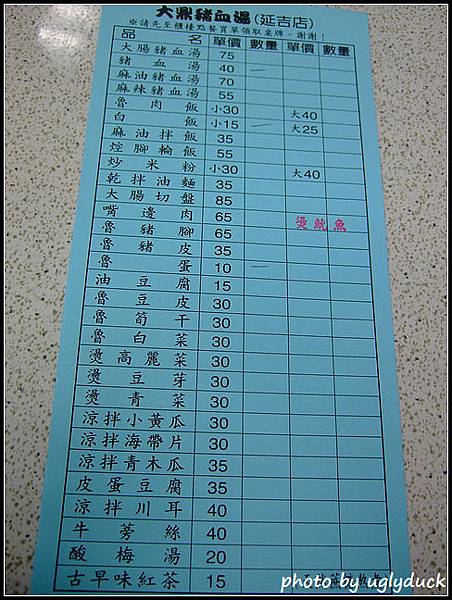 大鼎豬血湯(延吉店)
※請先至櫃檯點餐買單領取桌牌,謝謝!
品 名 單價 數量 單價 數量
大腸豬血湯 75
豬血湯 40
麻油豬血湯 70
麻辣豬血湯 55
魯肉飯 小30 大40
白飯 小15 大25
麻油拌飯 35
焢腳輪飯 55
炒米粉 小30 大40
乾拌油麵 35
大腸切盤 85
嘴邊肉 65 燙魷魚
魯豬腳 65
魯豬皮 35
魯蛋 10
油豆腐 15
魯豆皮 30
魯筍干 30
魯白菜 30
燙高麗菜 30
燙豆芽 30
燙青菜 30
涼拌小黃瓜 30
涼拌海帶片 30
涼拌青木瓜 35
皮蛋豆腐 35
涼拌川耳 40
牛蒡絲 40
酸梅湯 20
古早味紅茶 15
photo by uglyduck